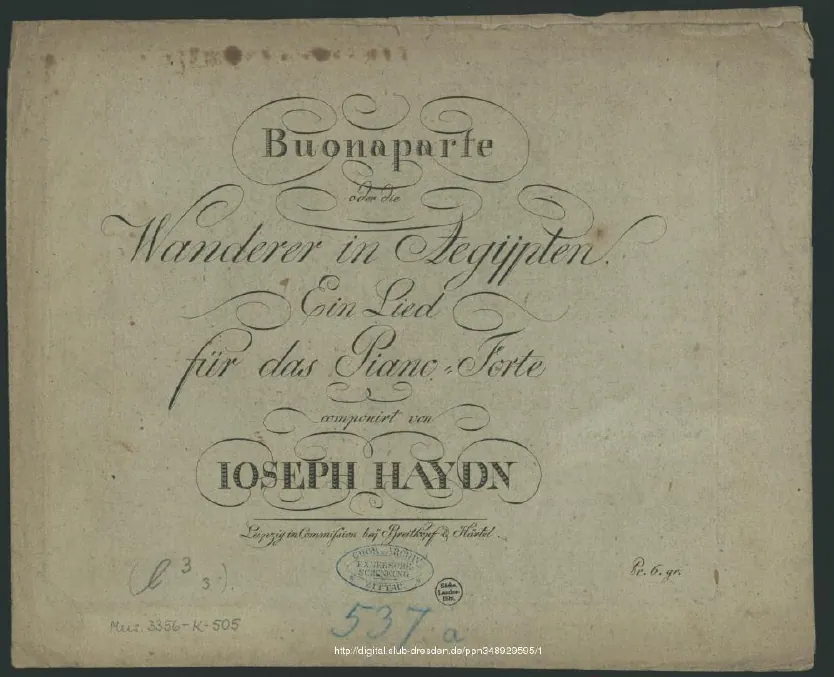 Buonaparte
oder die
Wanderer in Aegÿpten.
Ein Lied
für das Piano-Forte
componirt von
IOSEPH HAYDN
Leipzig in Commission beÿ Breitkopf & Härtel.
EXNERSCHE
SCHENKUNG
ZITTAU
Sächs.
Landes-
Bibl.
Pr. 6. gr.
Mus. 3356-K-505
537 a
http://digital.slub-dresden.de/ppn348929595/1